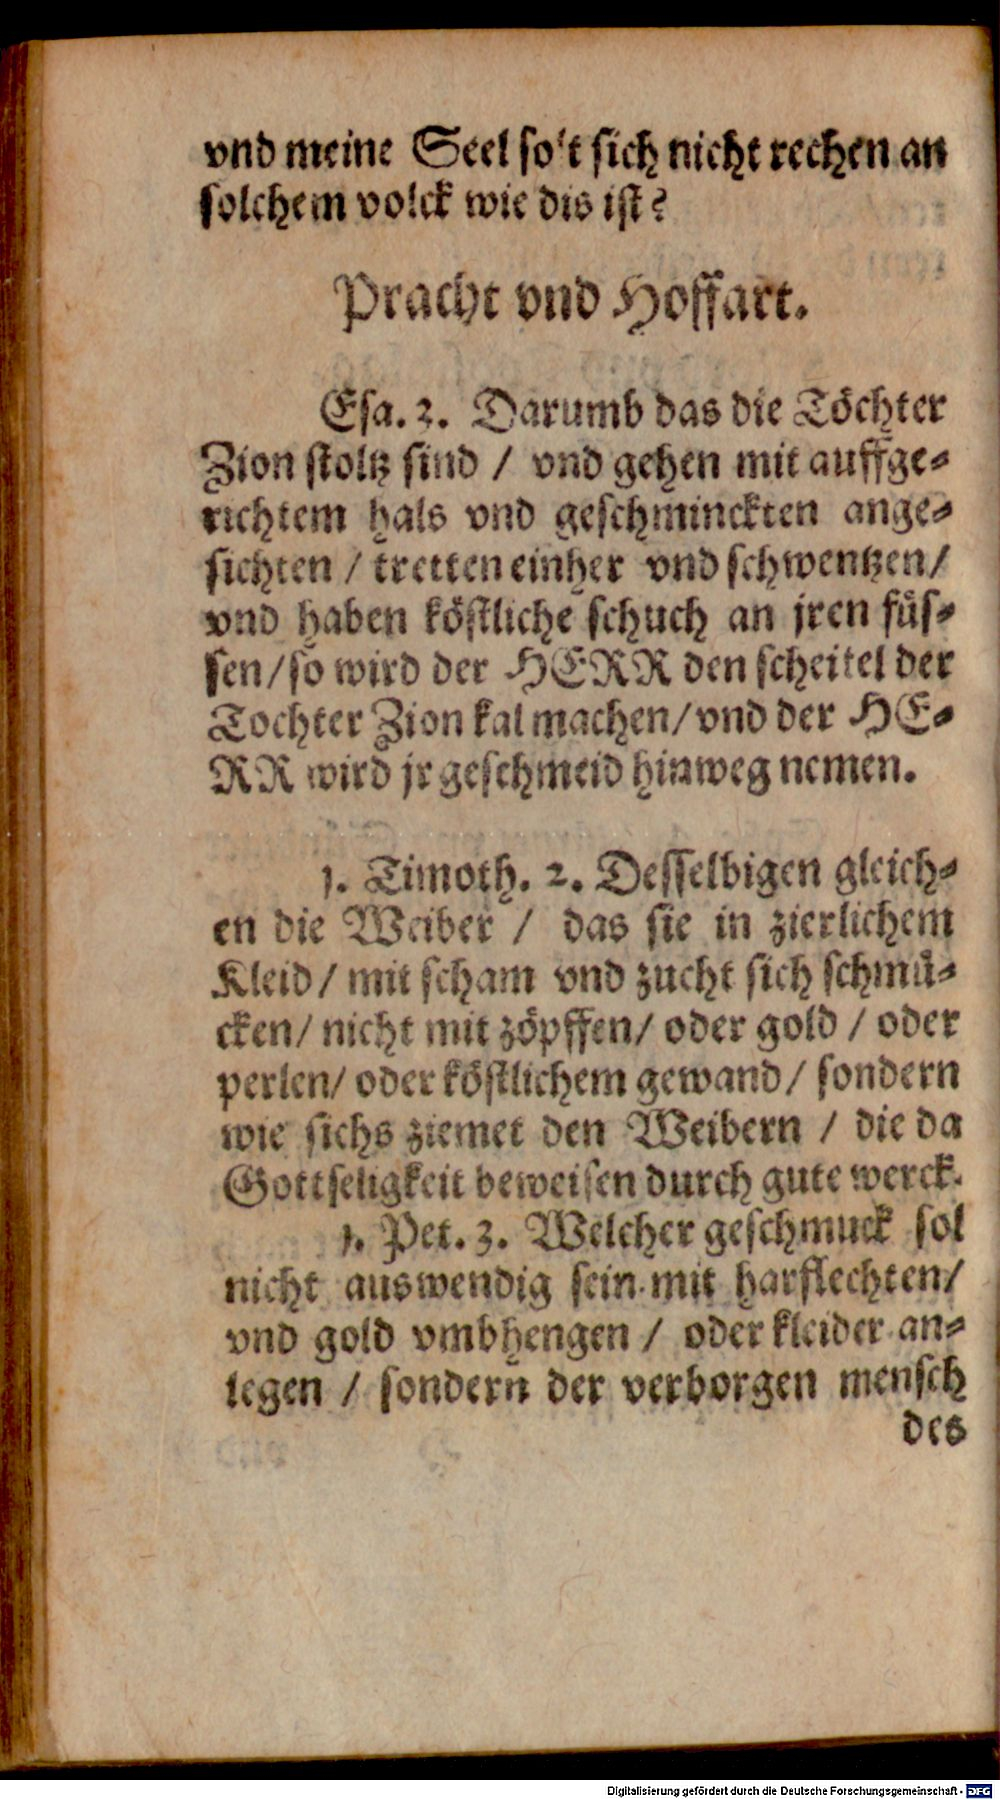 vnd meine Seel solt sich nicht rechen an
solchem volck wie dis ist?
Pracht vnd Hoffart.
Esa. 3. Darumb das die Töchter
Zion stoltz sind / vnd gehen mit auffge-
richtem hals vnd geschminckten ange-
sichten / tretten einher vnd schwentzen/
vnd haben köstliche schuch an jren füs-
sen/so wird der HERR den scheitel der
Tochter Zion kal machen/vnd der HE-
RR wird jr geschmeid hinweg nemen.
1. Timoth. 2. Desselbigen gleich-
en die Weiber / das sie in zierlichem
Kleid/ mit scham vnd zucht sich schmü-
cken/ nicht mit zöpffen/ oder gold / oder
perlen/ oder köstlichem gewand/ sondern
wie sichs ziemet den Weibern / die da
Gottseligkeit beweisen durch gute werck.
1. Pet. 3. Welcher geschmuck sol
nicht auswendig sein mit harflechten/
vnd gold vmbhengen / oder kleider an-
legen / sondern der verborgen mensch
des
Digitalisierung gefördert durch die Deutsche Forschungsgemeinschaft - DFG